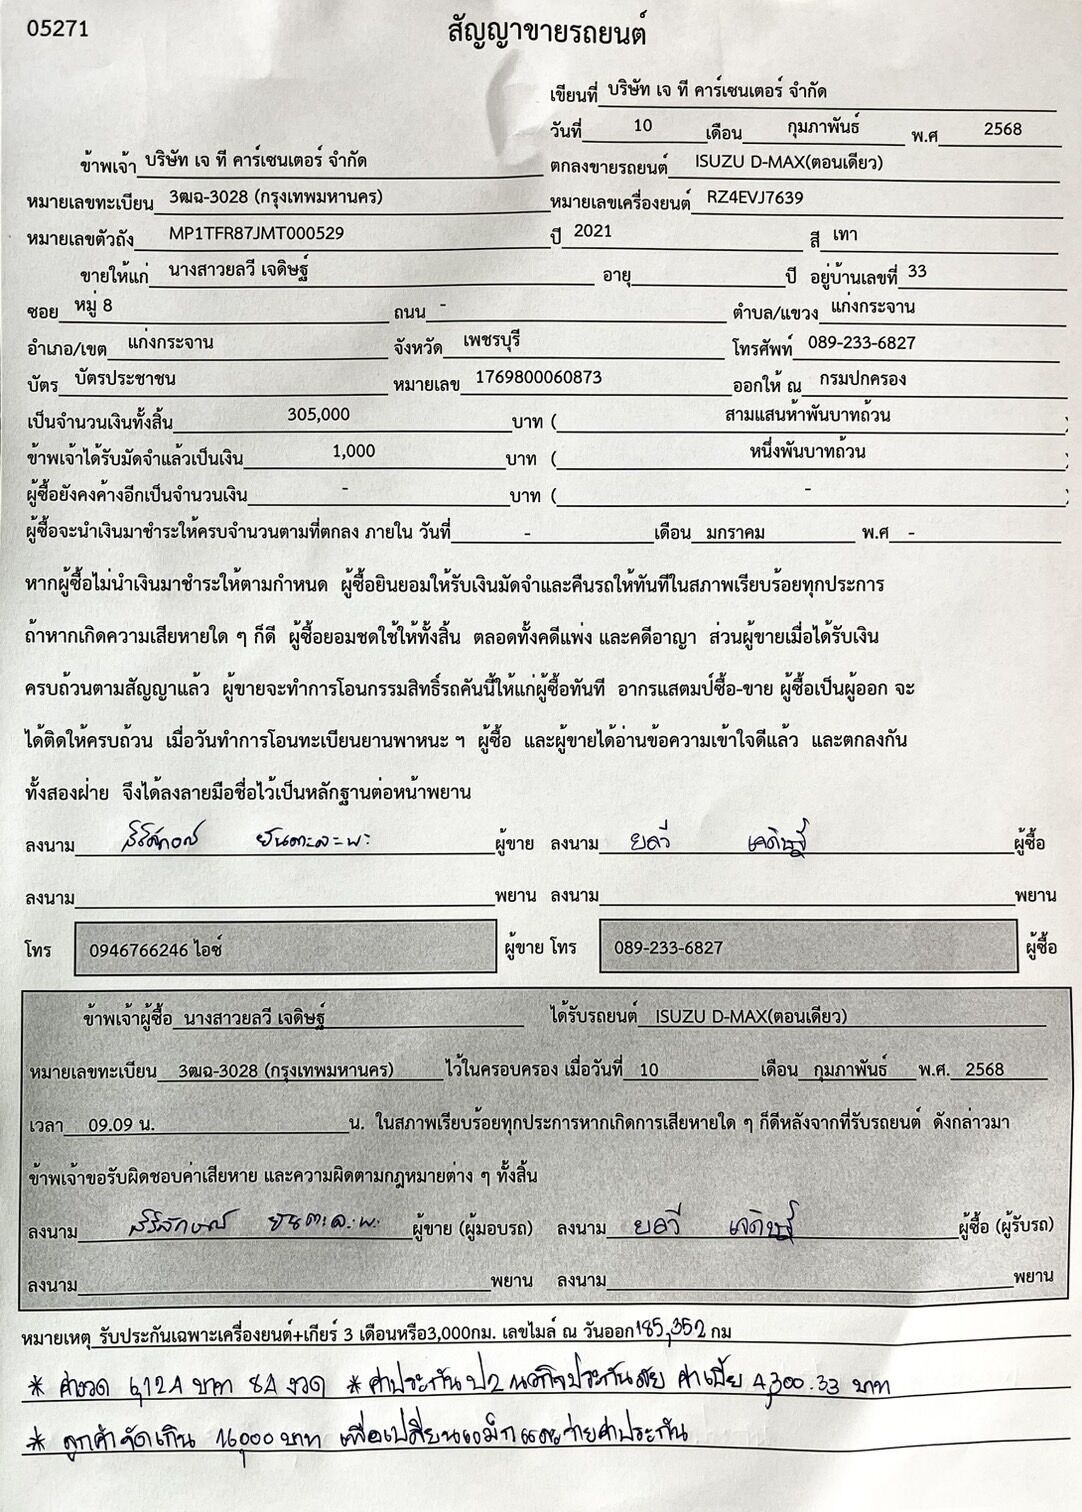 05271
สัญญาขายรถยนต์
เขียนที่ บริษัท เจ ที คาร์เซนเตอร์ จำกัด
วันที่ 10 เดือน กุมภาพันธ์ พ.ศ 2568
ข้าพเจ้า บริษัท เจ ที คาร์เซนเตอร์ จำกัด ตกลงขายรถยนต์ ISUZU D-MAX(ตอนเดียว)
หมายเลขทะเบียน 3ฒฉ-3028 (กรุงเทพมหานคร) หมายเลขเครื่องยนต์ RZ4EVJ7639
หมายเลขตัวถัง MP1TFR87JMT000529 ปี 2021 สี เทา
ขายให้แก่ นางสาวยลวี เจดิษฐ์ อายุ ปี อยู่บ้านเลขที่ 33
ซอย หมู่ 8 ถนน - ตำบล/แขวง แก่งกระจาน
อำเภอ/เขต แก่งกระจาน จังหวัด เพชรบุรี โทรศัพท์ 089-233-6827
บัตร บัตรประชาชน หมายเลข 1769800060873 ออกให้ ณ กรมปกครอง
เป็นจำนวนเงินทั้งสิ้น 305,000 บาท ( สามแสนห้าพันบาทถ้วน )
ข้าพเจ้าได้รับมัดจำแล้วเป็นเงิน 1,000 บาท ( หนึ่งพันบาทถ้วน )
ผู้ซื้อยังคงค้างอีกเป็นจำนวนเงิน - บาท ( - )
ผู้ซื้อจะนำเงินมาชำระให้ครบจำนวนตามที่ตกลง ภายใน วันที่ - เดือน มกราคม พ.ศ -
หากผู้ซื้อไม่นำเงินมาชำระให้ตามกำหนด ผู้ซื้อยินยอมให้รับเงินมัดจำและคืนรถให้ทันทีในสภาพเรียบร้อยทุกประการ
ถ้าหากเกิดความเสียหายใด ๆ ก็ดี ผู้ซื้อยอมชดใช้ให้ทั้งสิ้น ตลอดทั้งคดีแพ่ง และคดีอาญา ส่วนผู้ขายเมื่อได้รับเงิน
ครบถ้วนตามสัญญาแล้ว ผู้ขายจะทำการโอนกรรมสิทธิ์รถคันนี้ให้แก่ผู้ซื้อทันที อากรแสตมป์ซื้อ-ขาย ผู้ซื้อเป็นผู้ออก จะ
ได้ติดให้ครบถ้วน เมื่อวันทำการโอนทะเบียนยานพาหนะ ฯ ผู้ซื้อ และผู้ขายได้อ่านข้อความเข้าใจดีแล้ว และตกลงกัน
ทั้งสองฝ่าย จึงได้ลงลายมือชื่อไว้เป็นหลักฐานต่อหน้าพยาน
ลงนาม ผู้ขาย ลงนาม ยลวี เจดิษฐ์ ผู้ซื้อ
ลงนาม พยาน ลงนาม พยาน
โทร 0946766246 ไอซ์ ผู้ขาย โทร 089-233-6827 ผู้ซื้อ
ข้าพเจ้าผู้ซื้อ นางสาวยลวี เจดิษฐ์ ได้รับรถยนต์ ISUZU D-MAX(ตอนเดียว)
หมายเลขทะเบียน 3ฒฉ-3028 (กรุงเทพมหานคร) ไว้ในครอบครอง เมื่อวันที่ 10 เดือน กุมภาพันธ์ พ.ศ. 2568
เวลา 09.09 น. น. ในสภาพเรียบร้อยทุกประการหากเกิดการเสียหายใด ๆ ก็ดีหลังจากที่รับรถยนต์ ดังกล่าวมา
ข้าพเจ้าขอรับผิดชอบค่าเสียหาย และความผิดตามกฎหมายต่าง ๆ ทั้งสิ้น
ลงนาม ผู้ขาย (ผู้มอบรถ) ลงนาม ยลวี เจดิษฐ์ ผู้ซื้อ (ผู้รับรถ)
ลงนาม พยาน ลงนาม พยาน
หมายเหตุ รับประกันเฉพาะเครื่องยนต์+เกียร์ 3 เดือนหรือ3,000กม. เลขไมล์ ณ วันออก185,352 กม
* ค่างวด 6,124 บาท 84 งวด * ค่าประกัน ป2 นวกิจประกันภัย ค่าเบี้ย 4,300.33 บาท
* ลูกค้าจัดเกิน 16,000 บาท เพื่อเปลี่ยนแม็กและจ่ายค่าประกัน